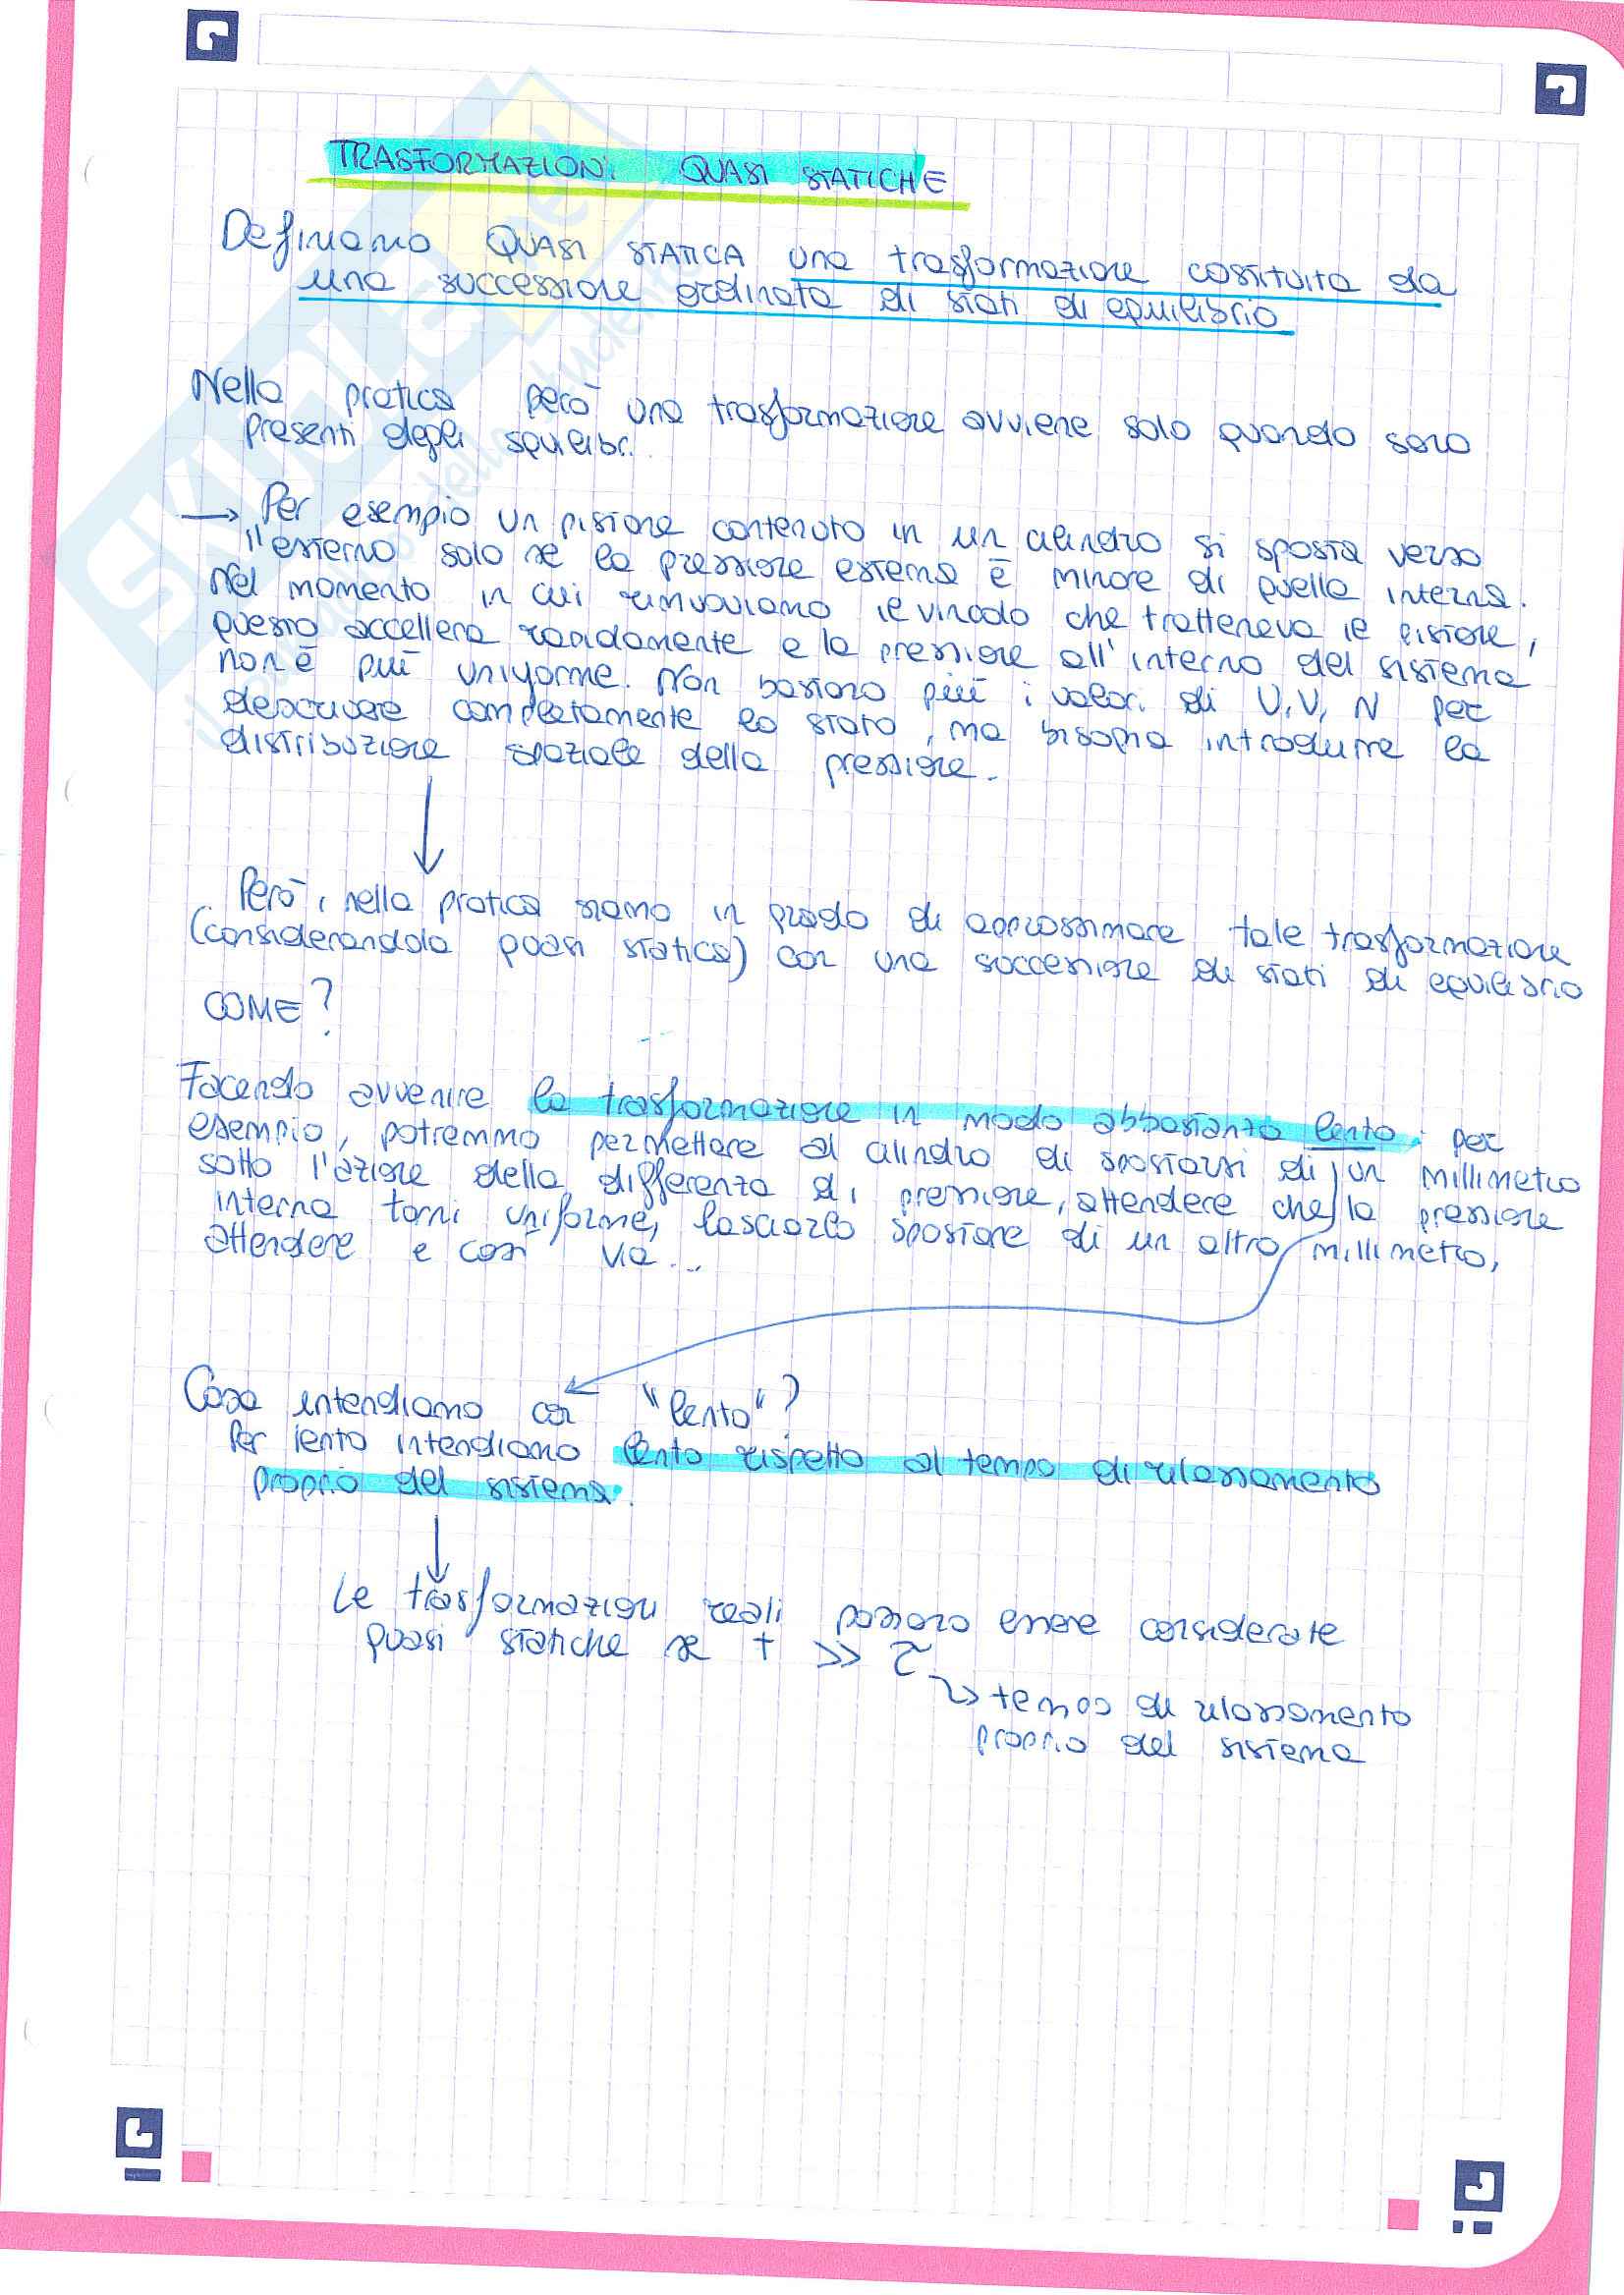 TRASFORMAZIONI QUASI STATICHE
Definiamo QUASI STATICA una trasformazione costituita da
una successione ordinata di stati di equilibrio
Nella pratica però una trasformazione avviene solo quando sono
presenti degli squilibri.
→ Per esempio un pistone contenuto in un cilindro si sposta verso
l'esterno solo se la pressione esterna è minore di quella interna.
Nel momento in cui rimuoviamo il vincolo che tratteneva il pistone,
questo accellera rapidamente e la pressione all'interno del sistema
non è più uniforme. Non bastano più i valori di U, V, N per
descrivere completamente lo stato, ma bisogna introdurre la
distribuzione spaziale della pressione.
Però, nella pratica siamo in grado di approssimare tale trasformazione
(considerandola quasi statica) con una successione di stati di equilibrio
COME?
Facendo avvenire la trasformazione in modo abbastanza lento: per
esempio, potremmo permettere al cilindro di spostarsi di un millimetro
sotto l'azione della differenza di pressione, attendere che la pressione
interna torni uniforme, lasciarlo spostare di un altro millimetro,
attendere e così via...
Cosa intendiamo con "lento"?
Per lento intendiamo lento rispetto al tempo di rilassamento
proprio del sistema.
Le trasformazioni reali possono essere considerate
quasi statiche se t >> τ
tempo di rilassamento
proprio del sistema
SKUOLA.net